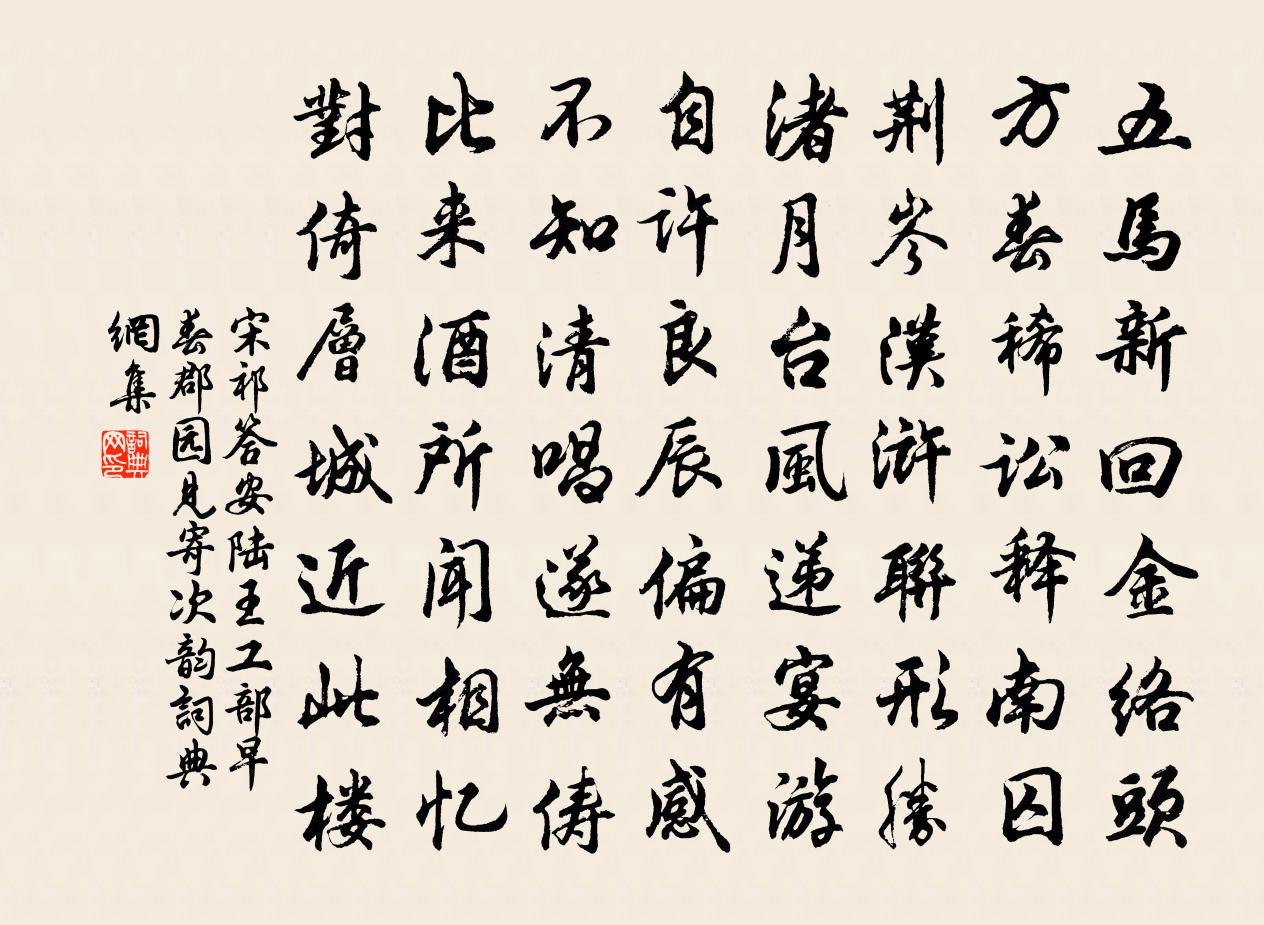 五馬新回金络頭
方春稀訟释南囚
荆岑漢浒聯形勝
渚月台風递宴游
自許良辰偏有感
不知清唱遂無俦
比来酒所闻相忆
對倚層城近此楼
宋祁答安陆王工部早
春郡园见寄次韵詞典
網集
詞典
网印